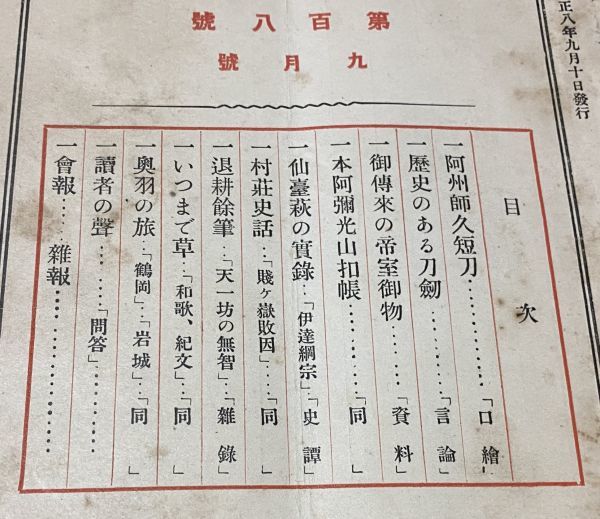 正八年九月十日發行
第百八號
九月號
目次
一阿州師久短刀…………「口繪」
一歷史のある刀劒………「言論」
一御傳來の帝室御物……「資料」
一本阿彌光山扣帳………「同」
一仙臺萩の實錄…「伊達綱宗」…「史譚」
一村莊史話…「賤ヶ嶽敗因」…「同」
一退耕餘筆…「天一坊の無智」…「雜錄」
一いつまで草…「和歌、紀文」…「同」
一奧羽の旅…「鶴岡」…「岩城」…「同」
一讀者の聲……「問答」…………
一會報……雜報…………